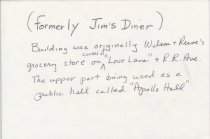 (formerly Jim's Diner)
Building was originally Wilson + Reeve's
grocery store on corner of "Love Lane" + R.R. Ave.
The upper part being used as a
public hall called "Apollo Hall"